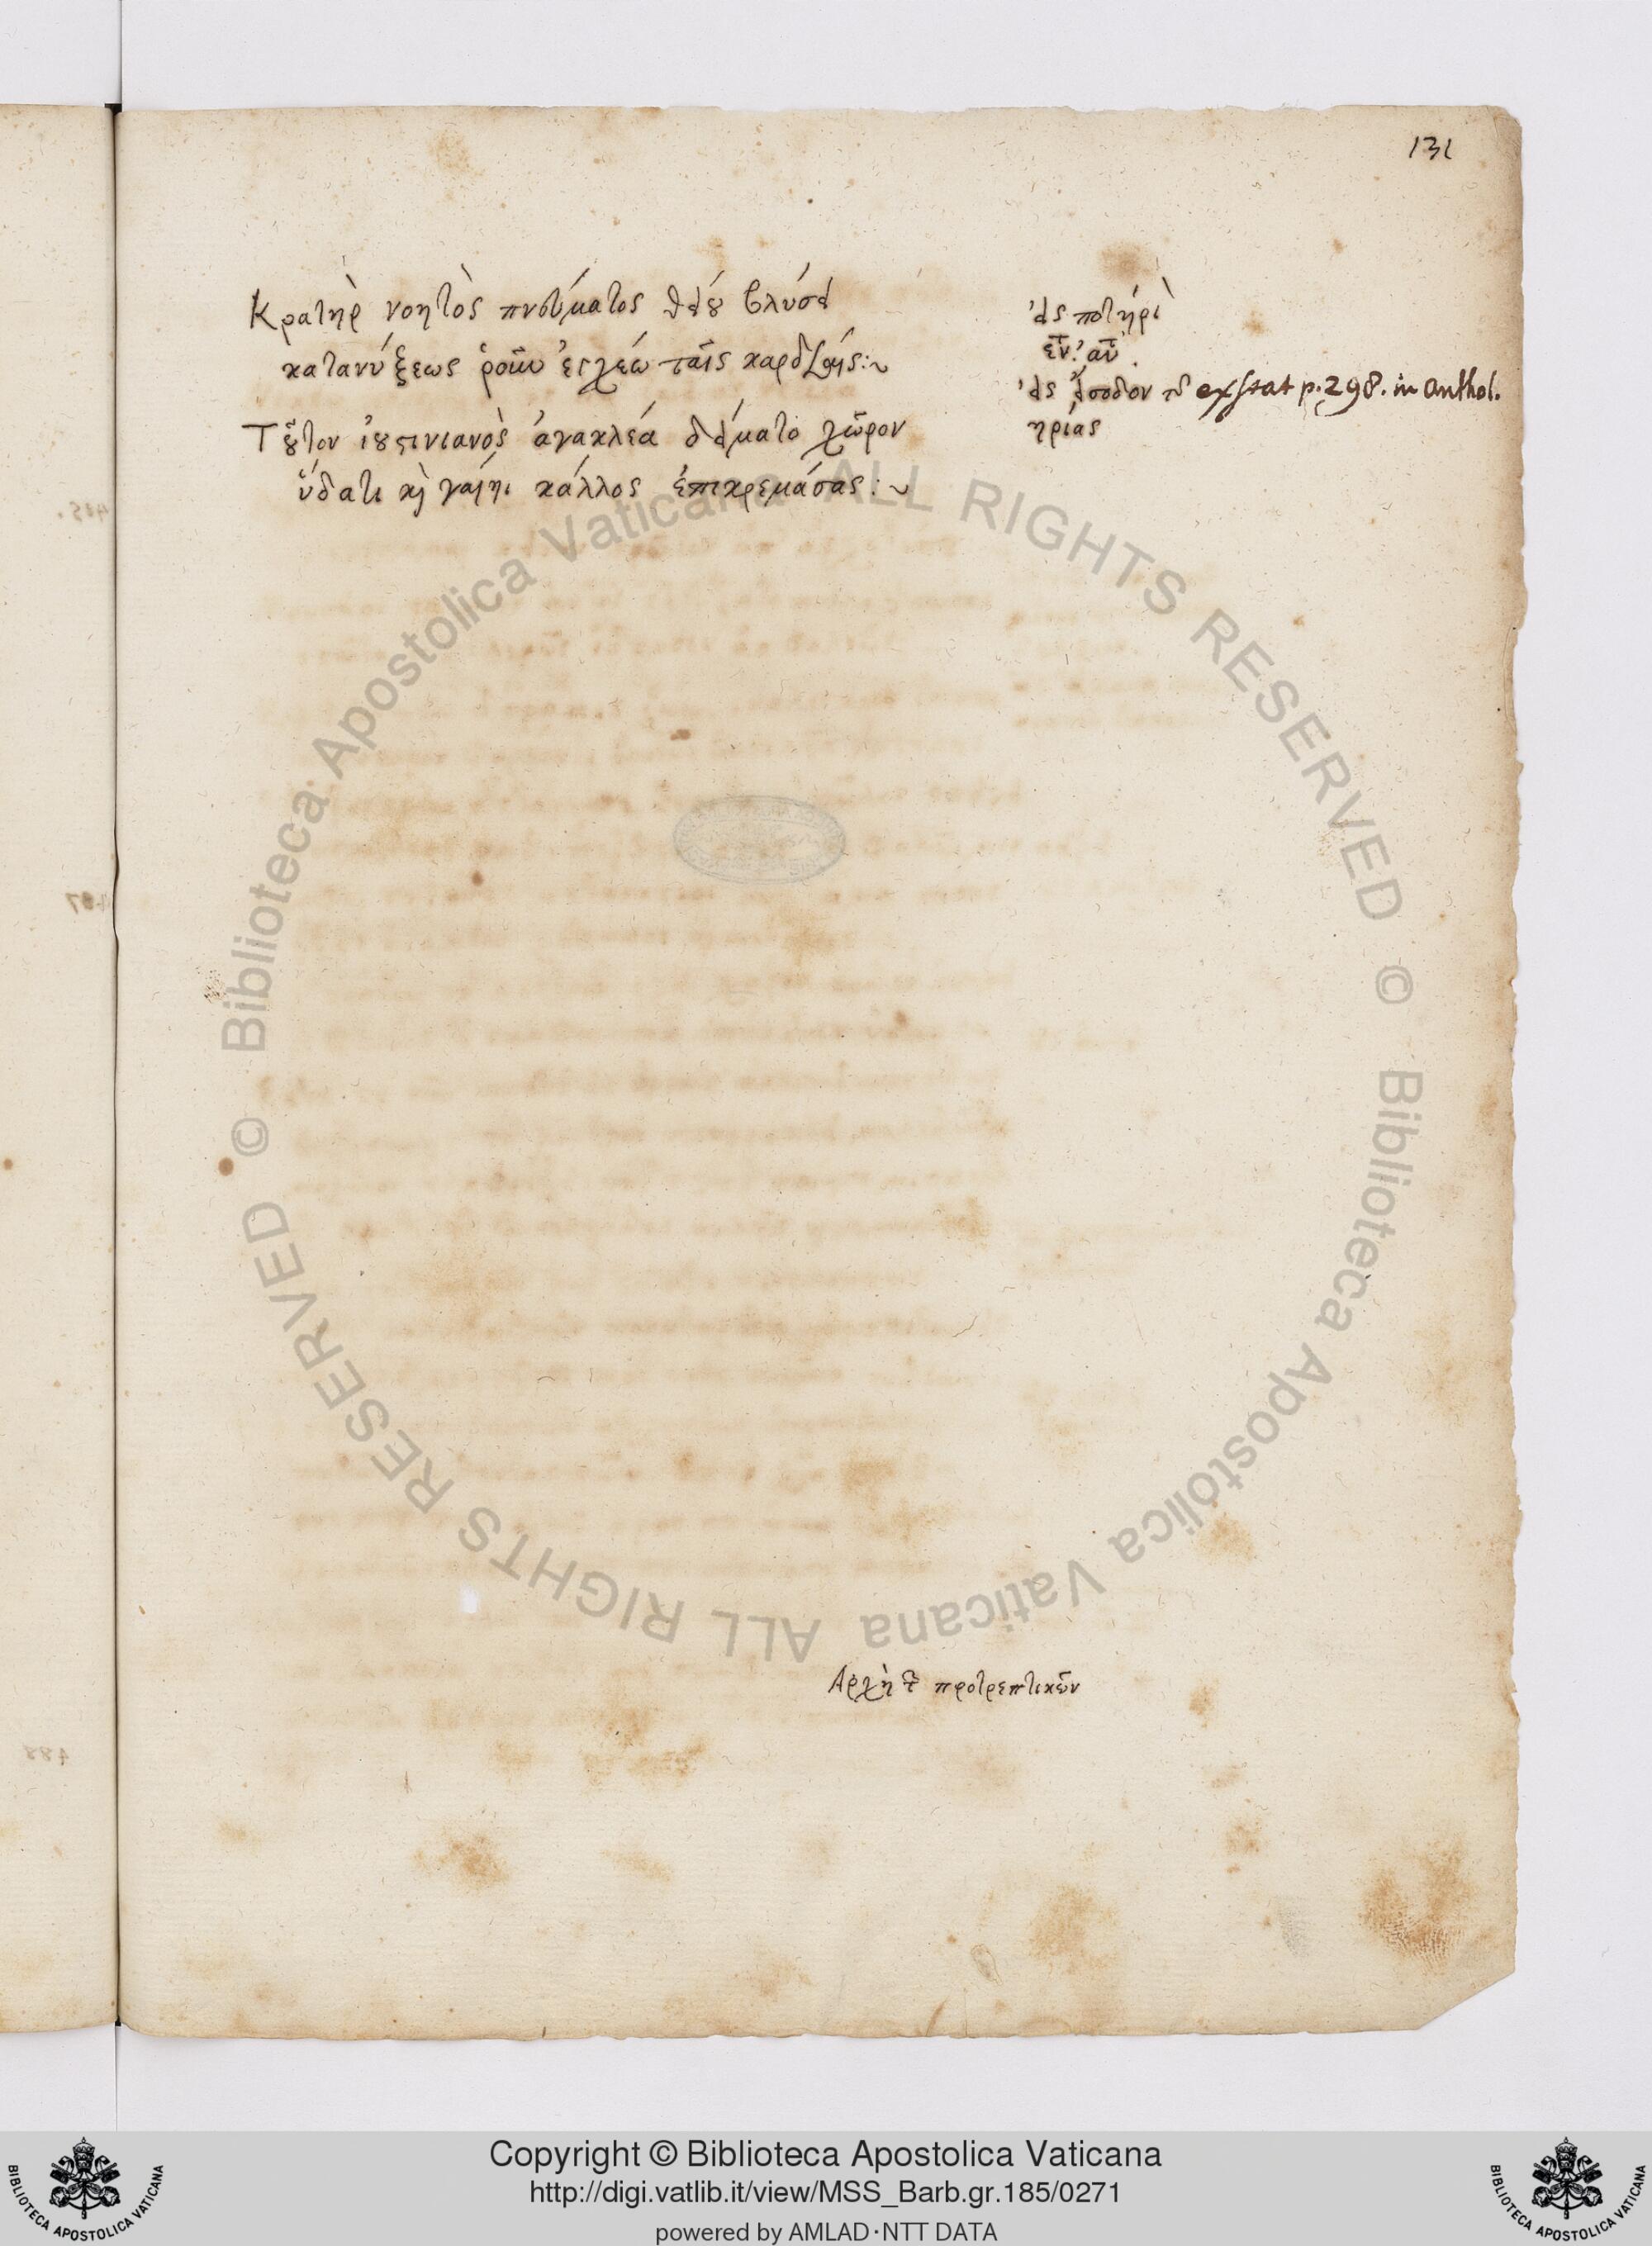 131
Κρατὴρ νοητὸς πνεύματος θείου βλύσει
κατανύξεως ῥοῦν εἰσχέω ταῖς καρδίαις:~
Τοῦτον ἰουστινιανὸς ἀγακλέα δείματο χῶρον
ὕδατι καὶ γαίηι κάλλος ἐπικρεμάσας:~
εἰς ποτήρι
εἰς εἴσοδον τ exstat p. 298. in Anthol.
ηρίας
Ἀρχὴ τ προτρεπτικῶν
© Biblioteca Apostolica Vaticana ALL RIGHTS RESERVED © Biblioteca Apostolica Vaticana ALL RIGHTS RESERVED
Copyright © Biblioteca Apostolica Vaticana
http://digi.vatlib.it/view/MSS_Barb.gr.185/0271
powered by AMLAD·NTT DATA
BIBLIOTECA APOSTOLICA VATICANA
BIBLIOTECA APOSTOLICA VATICANA